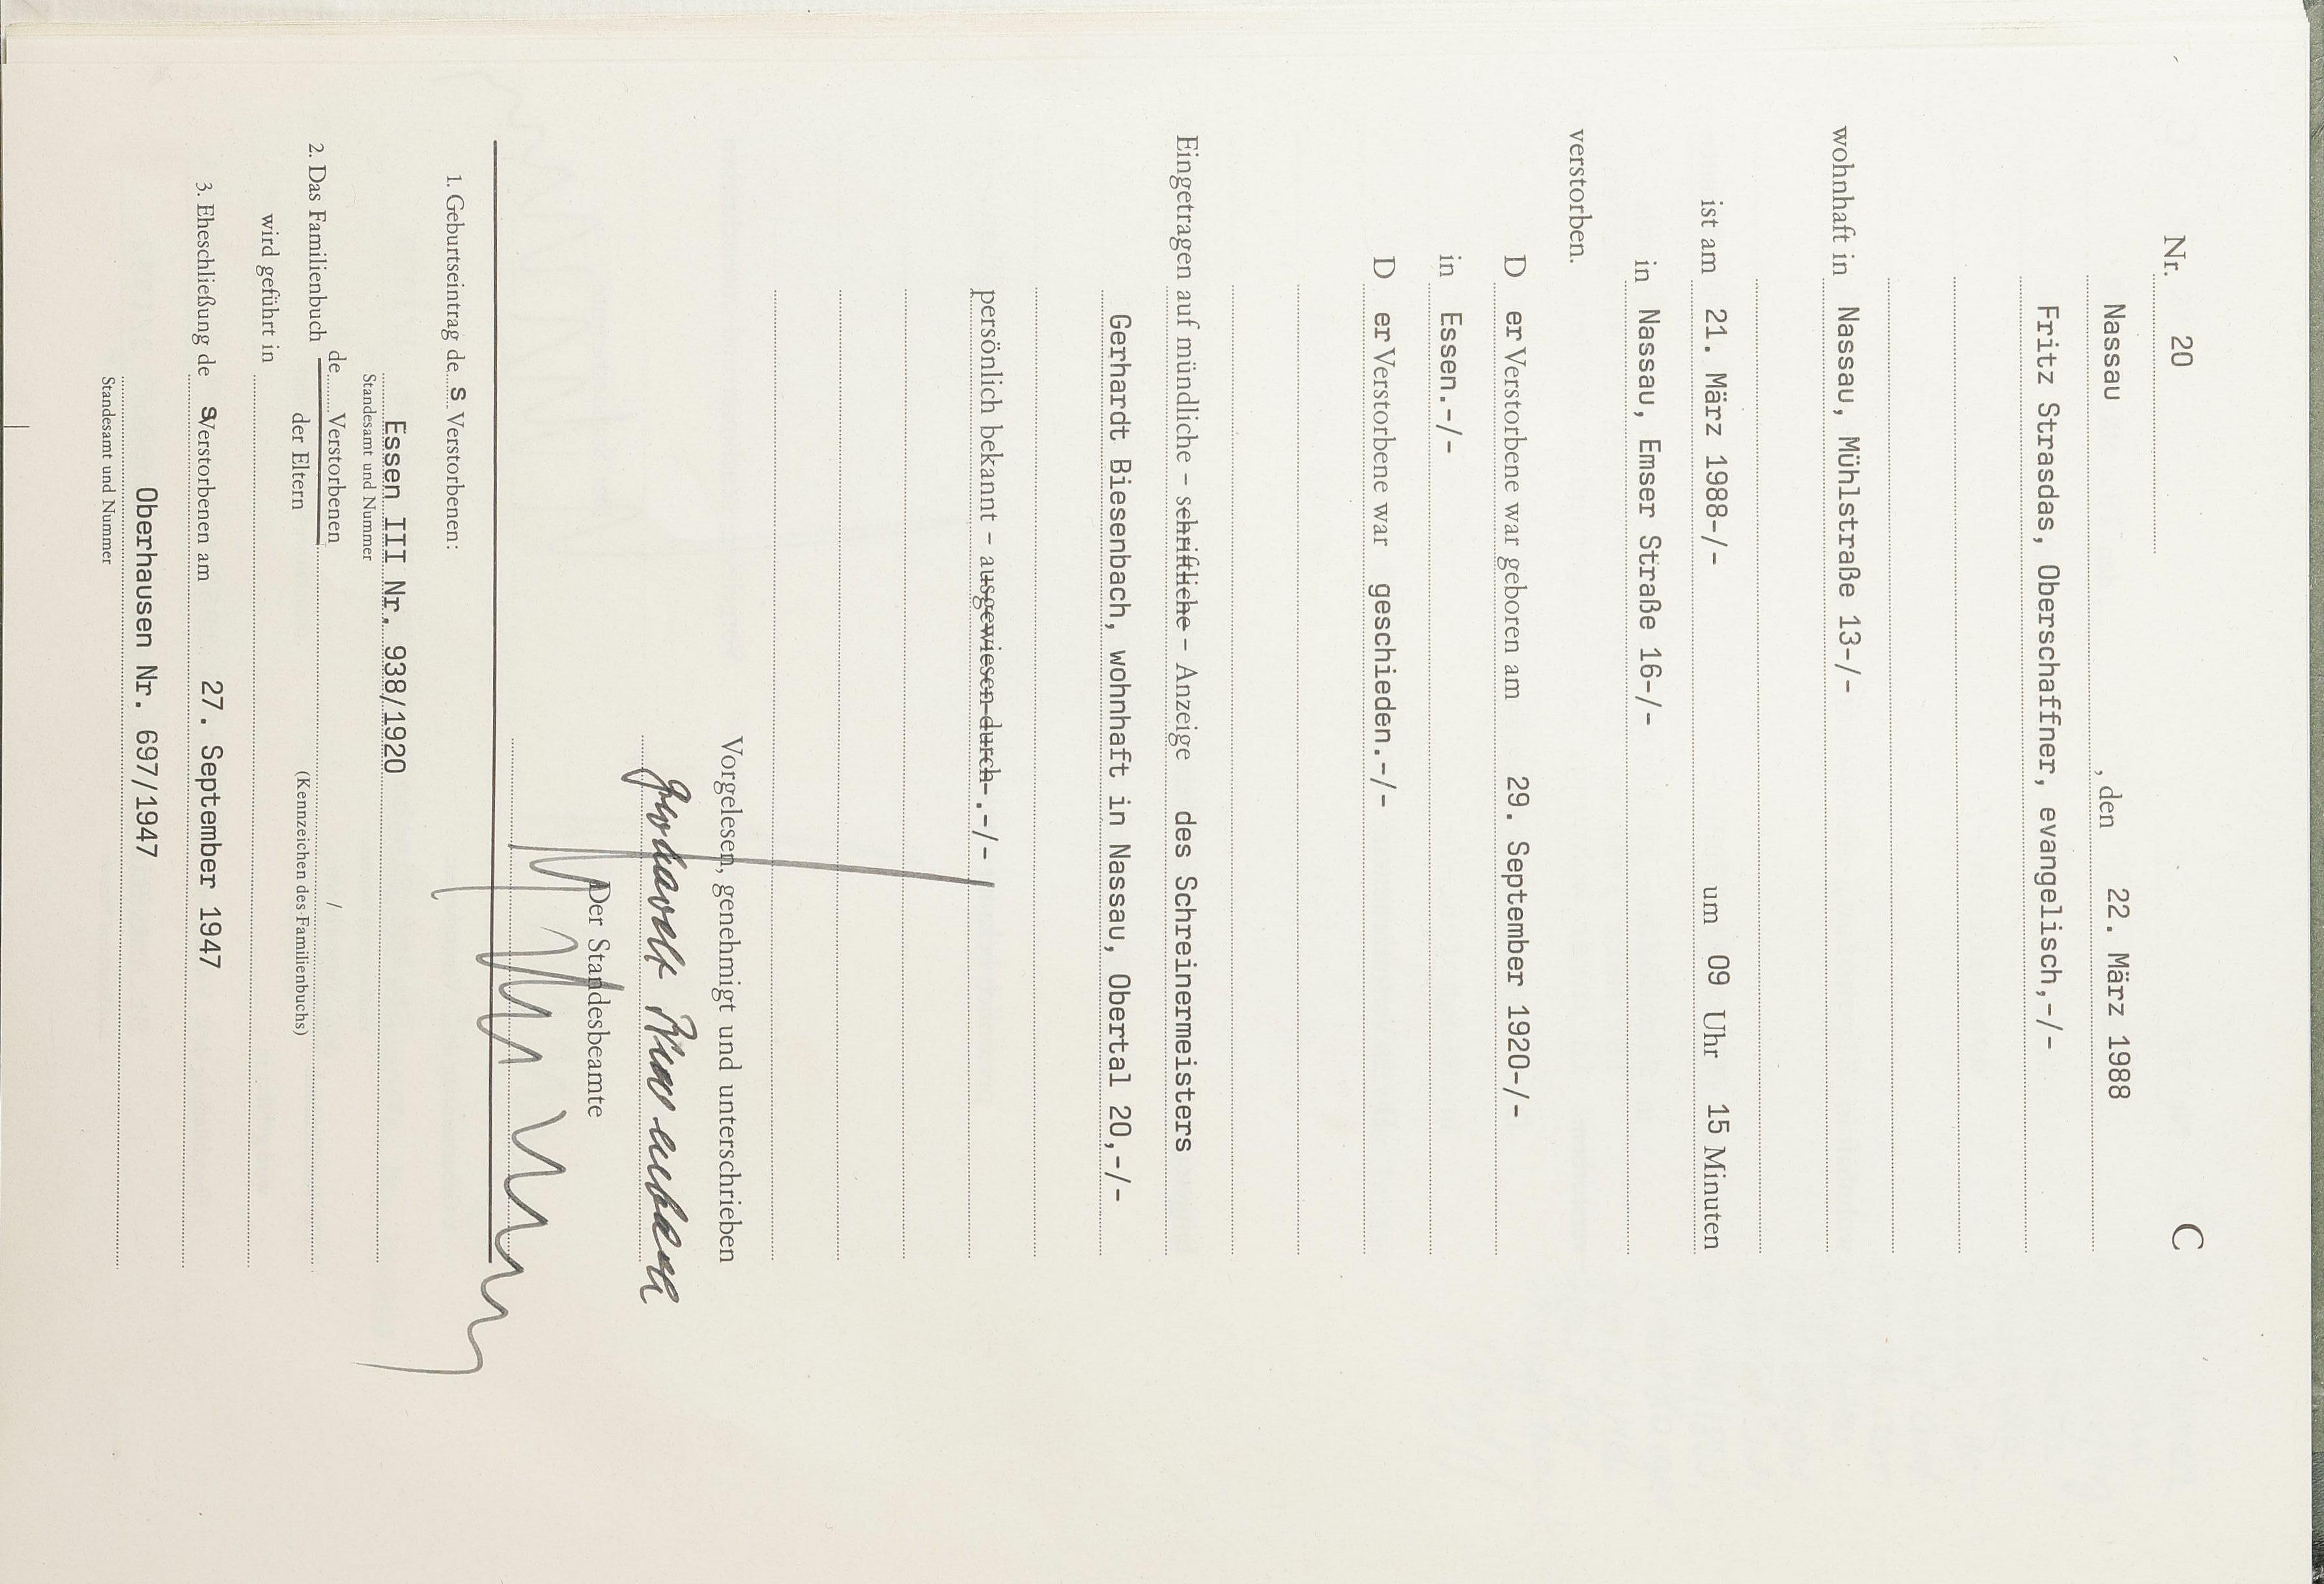 Nr. 20 C
Nassau , den 22. März 1988
Fritz Strasdas, Oberschaffner, evangelisch,-/-
wohnhaft in Nassau, Mühlstraße 13-/-
ist am 21. März 1988-/- um 09 Uhr 15 Minuten
in Nassau, Emser Straße 16-/-
verstorben.
D er Verstorbene war geboren am 29. September 1920-/-
in Essen.-/-
D er Verstorbene war geschieden.-/-
Eingetragen auf mündliche – schriftliche – Anzeige des Schreinermeisters
Gerhardt Biesenbach, wohnhaft in Nassau, Obertal 20,-/-
persönlich bekannt – ausgewiesen durch-.-/-
Vorgelesen, genehmigt und unterschrieben
Gerhardt Biesenbach
Der Standesbeamte
1. Geburtseintrag de s Verstorbenen:
Essen III Nr. 938/1920
Standesamt und Nummer
de Verstorbenen /
2. Das Familienbuch
der Eltern (Kennzeichen des Familienbuchs)
wird geführt in
3. Eheschließung de s Verstorbenen am 27. September 1947
Oberhausen Nr. 697/1947
Standesamt und Nummer